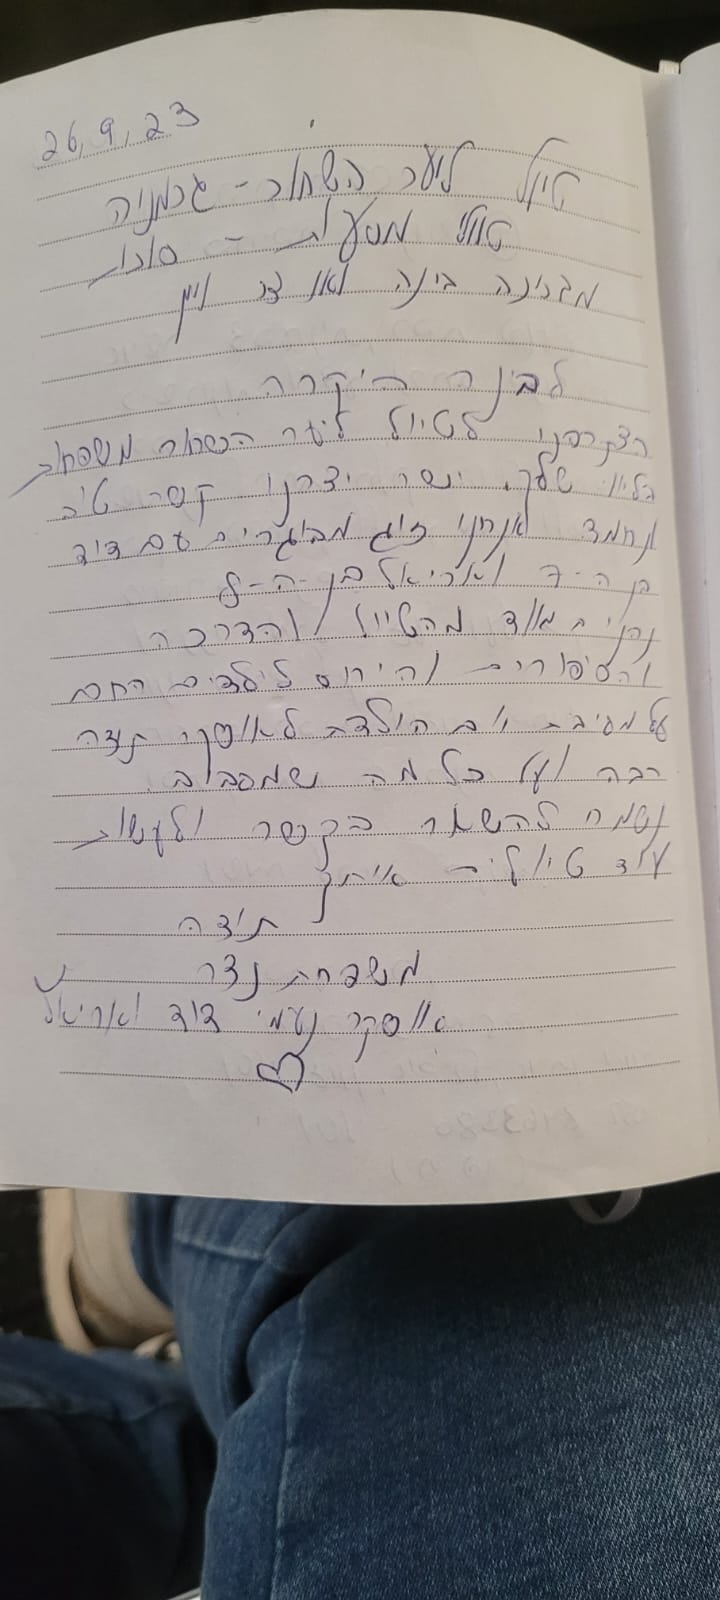 26,9,23
טיול ליער השחור - גרמניה
טיולי מסעות - סוכות
מדריכה בינה
לבינה היקרה
הצטרפנו לטיול ליער השחור משפחות
שלך. ישר יצרנו קשר טוב
ונחמד אנחנו זוג מבוגרים עם דוד
בן ה-7 ואריאל בן-ה-
נהנים מאוד מהטיול והדרכה
והסיפורים והיחס לילדים החם
על מסיבת יום הולדת לאוסקר תודה
רבה ועל כל מה שמסביב.
נשמח להשאר בקשר ולעשות
עוד טיולים איתך
תודה
משפחת נצר
אוסקר נעמי דוד ואריאל